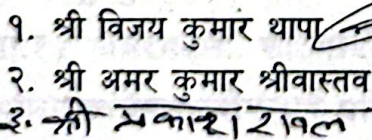 १. श्री विजय कुमार थापा
२. श्री अमर कुमार श्रीवास्तव
३. श्री प्रकाश रावल